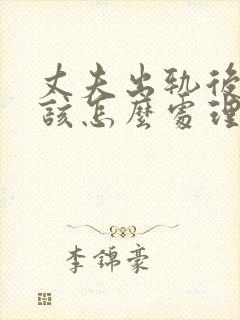 丈夫出轨後
該怎麼處理
李錦豪